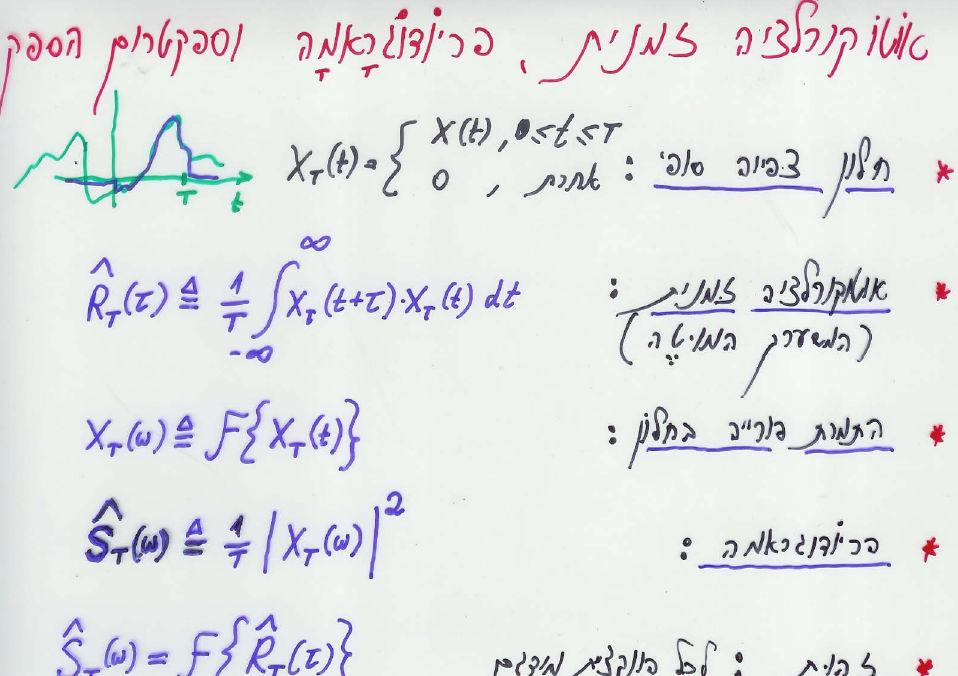 אוטוקורלציה זמנית, פריודוגראמה וספקטרום הספק
* חלון צפיה סופי : X_T(t) = { X(t), 0≤t≤T
0 , אחרת
T t
* אוטוקורלציה זמנית : R̂_T(τ) ≜ 1/T ∫_{-∞}^{∞} X_T(t+τ)·X_T(t) dt
(המשערך המוטה)
* התמרת פורייה בחלון : X_T(ω) ≜ F{X_T(t)}
* פריודוגראמה : Ŝ_T(ω) ≜ 1/T |X_T(ω)|²
* זהות : לכל פונקצית מידגם Ŝ_T(ω) = F{R̂_T(τ)}